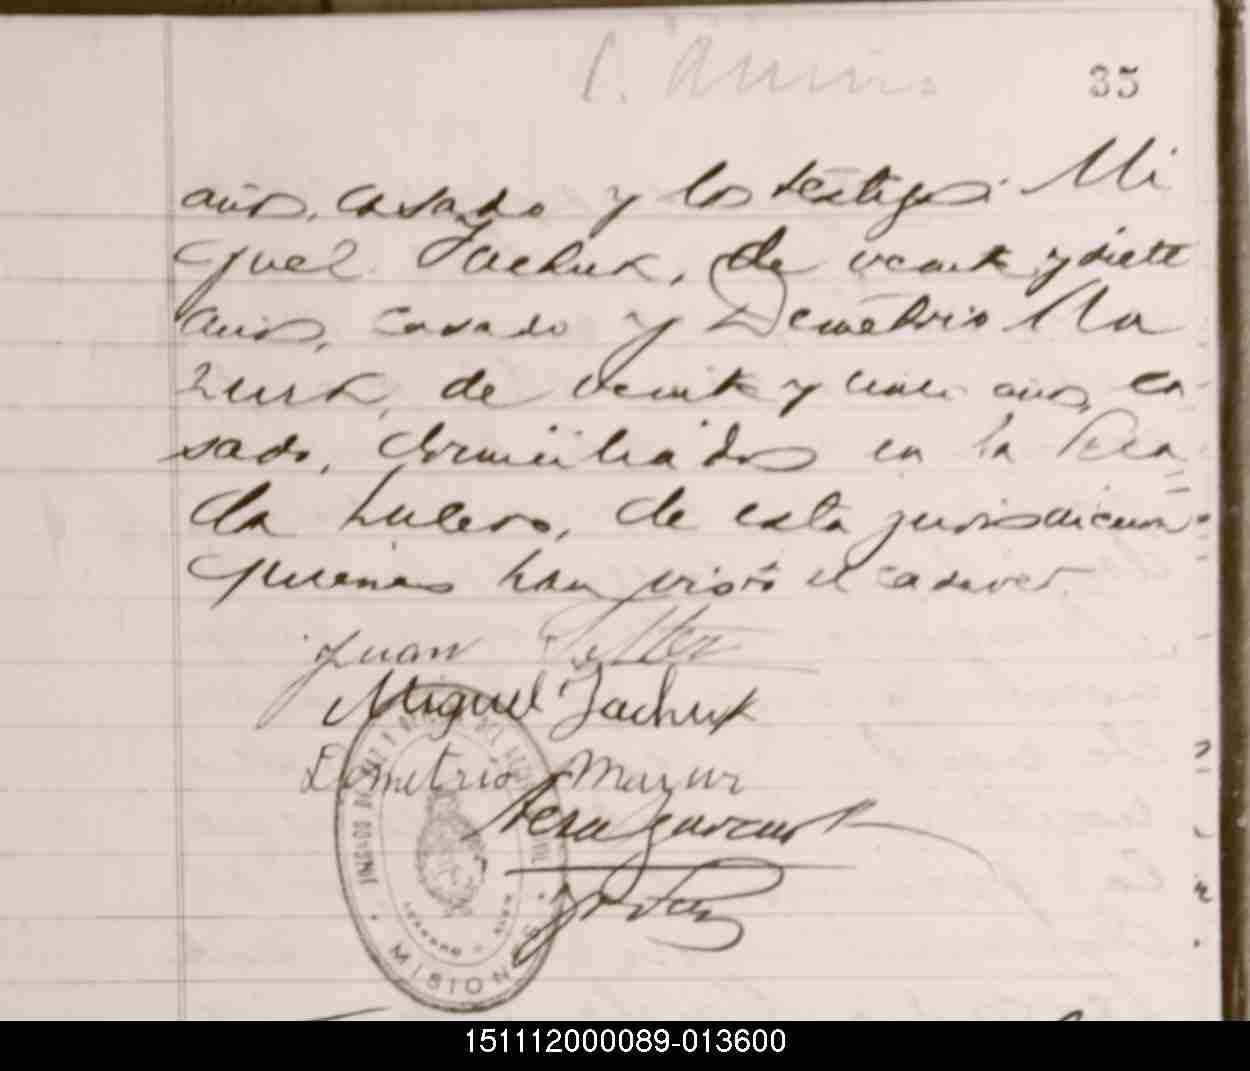 35
años, casado y los testigos: Mi
guel Jachuk, de veinte y siete
años, casado y Demetrio Ma
zurk, de veinte y años, ca-
sado, domiciliados en la Pica-
da Lucero, de esta jurisdiccion
quienes han visto el cadaver.
Juan
Miguel Jachuk
Demetrio Mazur
MISIONES
151112000089-013600